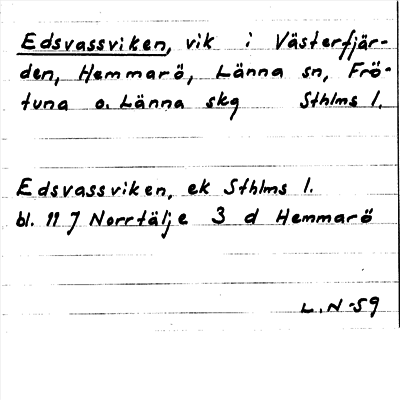 Edsvassviken, vik i Västerfjär-
den, Hemmarö, Länna sn, Frö-
tuna o. Länna skg Sthlms l.
Edsvassviken, ek Sthlms l.
bl. 11 J Norrtälje 3 d Hemmarö
L.N-59